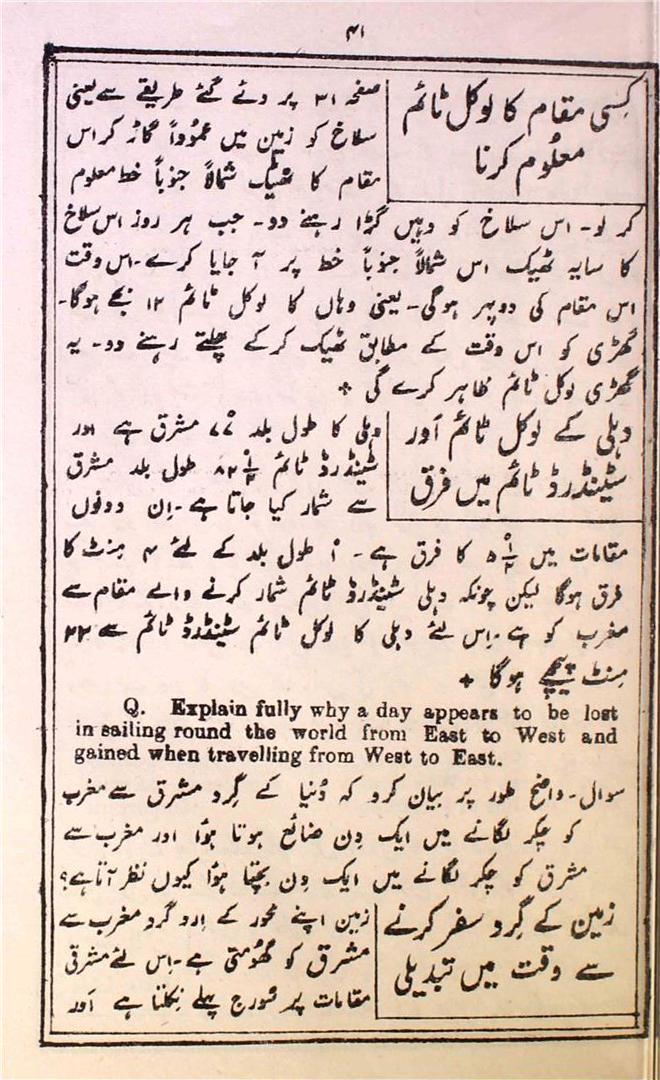 ۴۱
کِسی مقام کا لوکل ٹائم
معلُوم کرنا
صفحہ ۳۱ پر دئے گئے طریقے سے یعنی
سلاخ کو زمین میں عموُداً گاڑ کر اس
مقام کا ٹھیک شمالاً جنوباً خط معلوم
کر لو۔ اس سلاخ کو وہیں گڑا رہنے دو۔ جب ہر روز اس سلاخ
کا سایہ ٹھیک اس شمالاً جنوباً خط پر آ جایا کرے۔ اس وقت
اس مقام کی دوپہر ہوگی۔ یعنی وہاں کا لوکل ٹائم ۱۲ بجے ہوگا۔
گھڑی کو اس وقت کے مطابق ٹھیک کرکے چلتے رہنے دو۔ یہ
گھڑی لوکل ٹائم ظاہر کرے گی +
دہلی کے لوکل ٹائم اَور
سٹینڈرڈ ٹائم میں فرق
دہلی کا طول بلد ۷۷° مشرق ہے اور
سٹینڈرڈ ٹائم ۸۲½° طول بلد مشرق
سے شمار کیا جاتا ہے۔ اِن دونوں
مقامات میں ۵½° کا فرق ہے۔ ۱° طول بلد کے لئے ۴ مِنٹ کا
فرق ہوگا لیکن چونکہ دہلی سٹینڈرڈ ٹائم شمار کرنے والے مقام سے
مغرب کو ہے۔ اِس لئے دہلی کا لوکل ٹائم سٹینڈرڈ ٹائم سے ۲۲
مِنٹ پیچھے ہوگا +
Q. Explain fully why a day appears to be lost
in sailing round the world from East to West and
gained when travelling from West to East.
سوال۔ واضح طور پر بیان کرو کہ دُنیا کے گِرد مشرق سے مغرب
کو چکر لگانے میں ایک دِن ضائع ہوتا ہؤا اور مغرب سے
مشرق کو چکر لگانے میں ایک دِن بچتا ہؤا کیوں نظر آتا ہے؟
زمین کے گِرد سفر کرنے
سے وقت میں تبدیلی
زمین اپنے محور کے اِرد گرد مغرب سے
مشرق کو گھُومتی ہے۔ اِس لئے مشرقی
مقامات پر سُورج پہلے نِکلتا ہے اَور